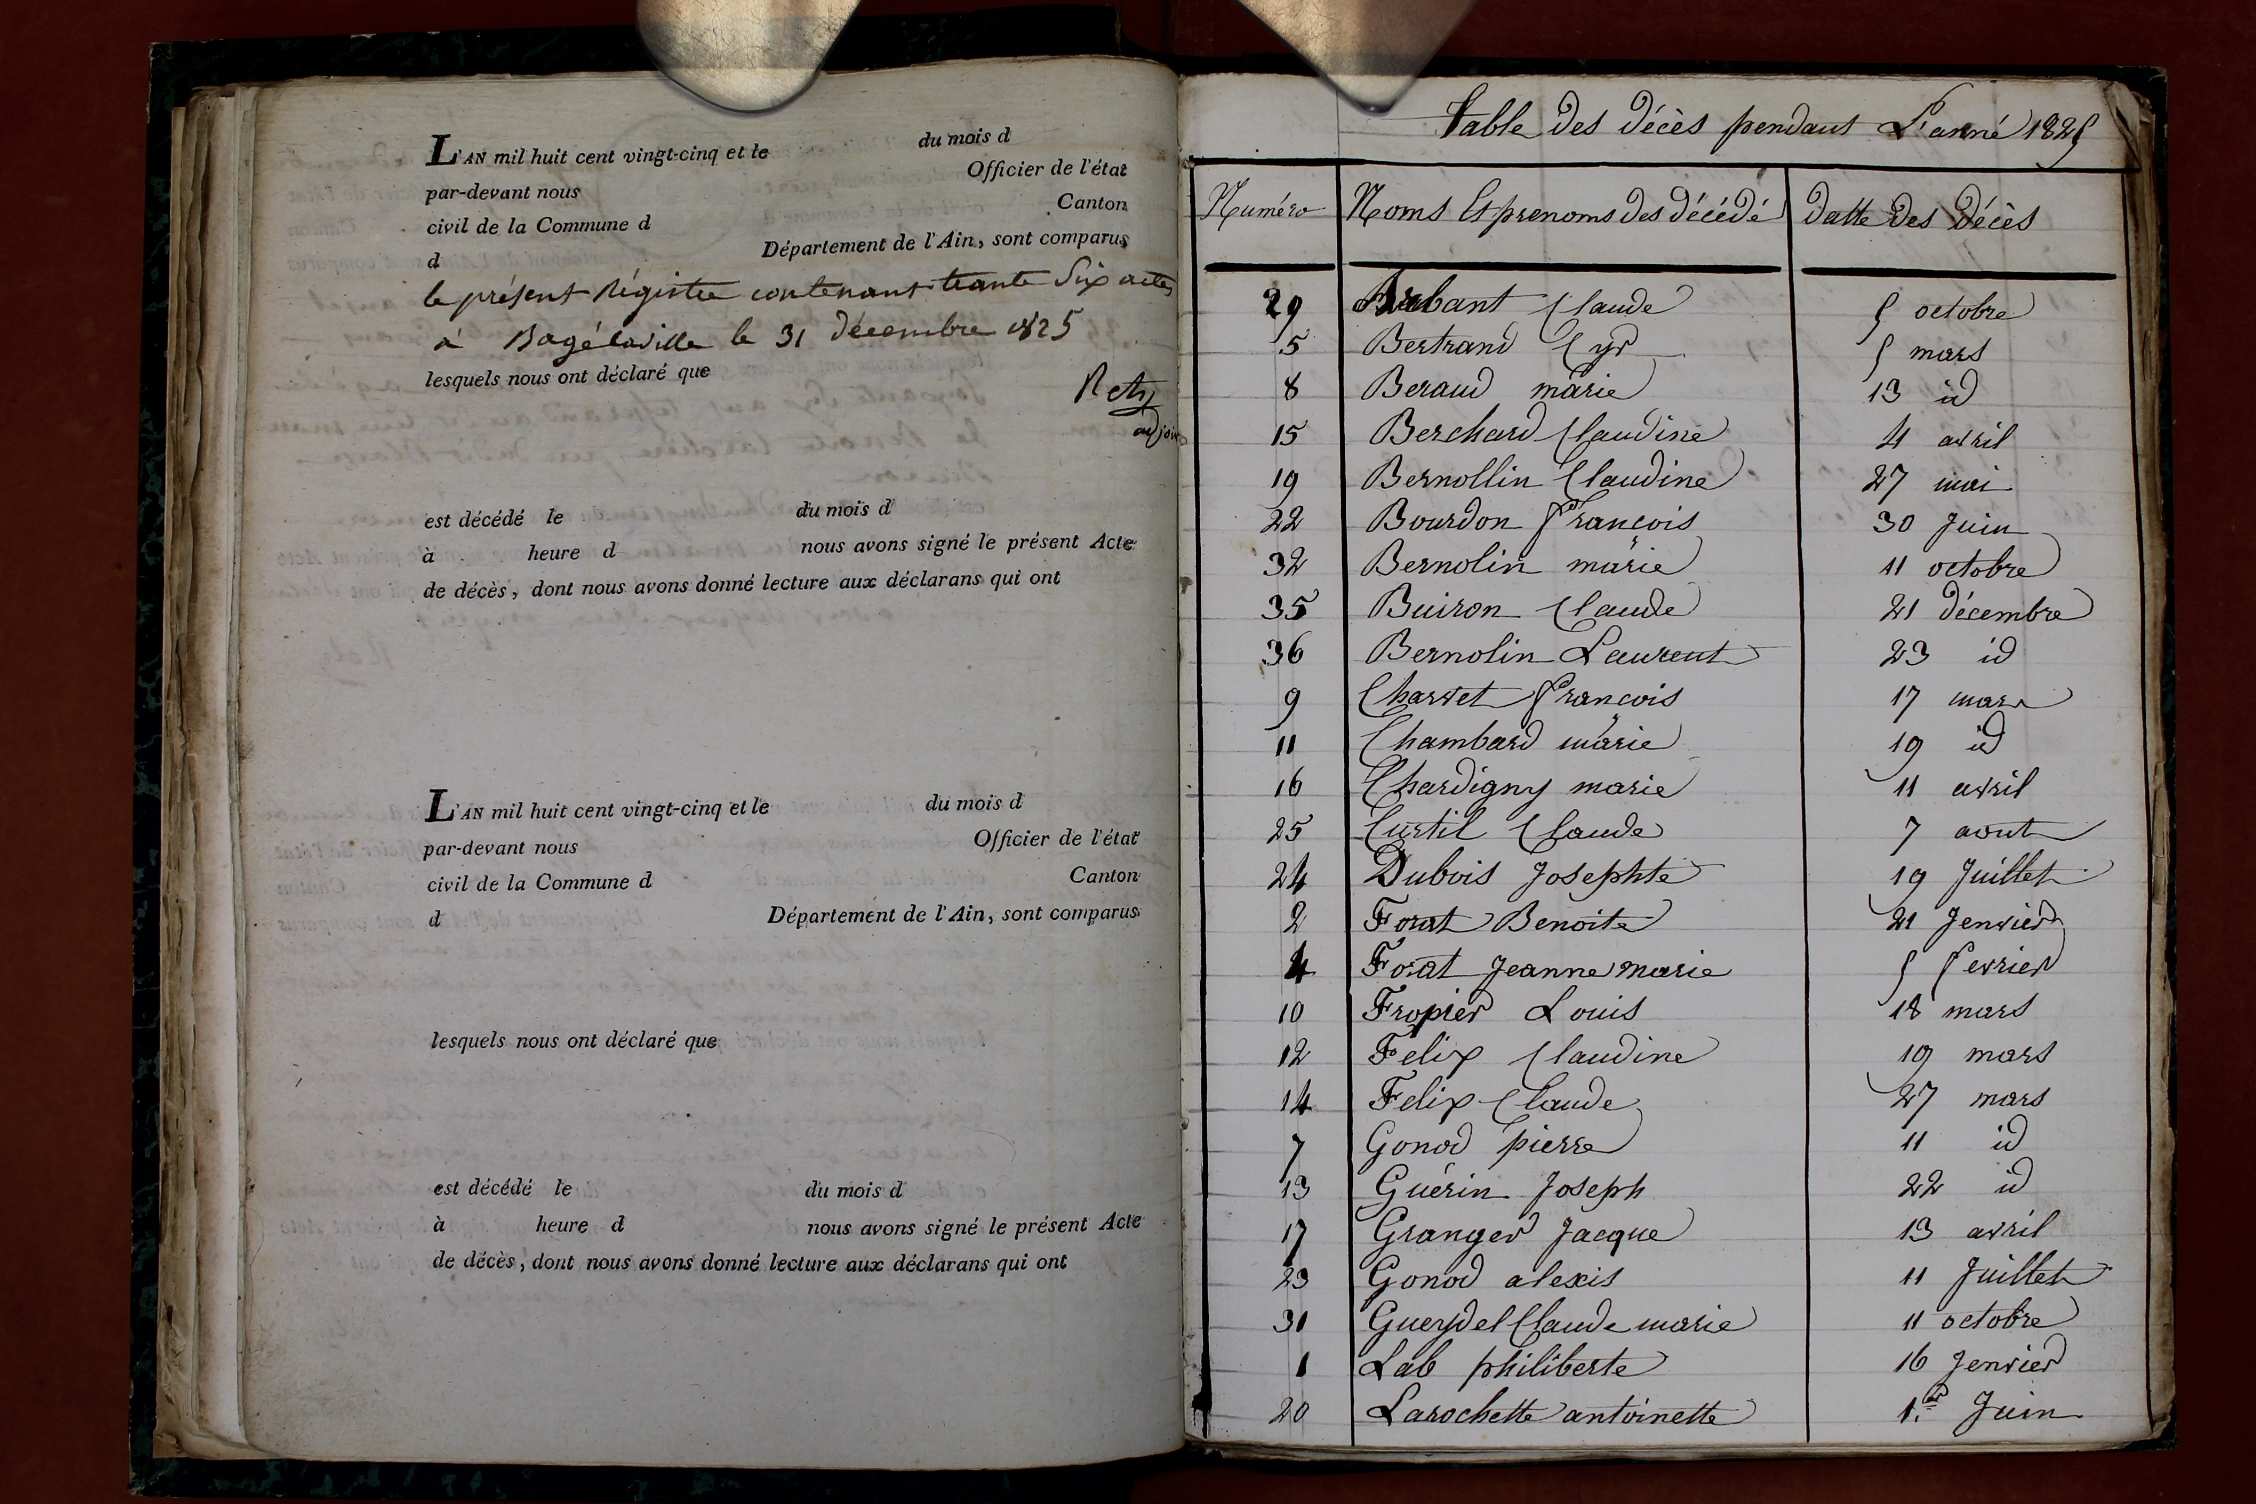 L'AN mil huit cent vingt-cinq et le du mois d
par-devant nous Officier de l'état
civil de la Commune d Canton
d Département de l'Ain, sont comparus
le présent Régistre contenant trante Six actes
à Bagélaville le 31 décembre 1825
lesquels nous ont déclaré que
Rety
adjoin
est décédé le du mois d
à heure d nous avons signé le présent Acte
de décès, dont nous avons donné lecture aux déclarans qui ont
L'AN mil huit cent vingt-cinq et le du mois d
par-devant nous Officier de l'état
civil de la Commune d Canton
d Département de l'Ain, sont comparus
lesquels nous ont déclaré que
est décédé le du mois d
à heure d nous avons signé le présent Acte
de décès, dont nous avons donné lecture aux déclarans qui ont
Table des décès pendant L'anné 1825
Numéro Noms Et prenoms des décédé datte des décès
29 Brabant Claude 5 octobre
5 Bertrand Cyr 5 mars
8 Beraud marie 13 id
15 Berchard Claudine 4 avril
19 Bernollin Claudine 27 mai
22 Bourdon François 30 Juin
32 Bernolin marie 11 octobre
35 Buiron Claude 21 décembre
36 Bernolin Laurent 23 id
9 Charvet François 17 mars
11 Chambard marie 19 id
16 Chardigny marie 11 avril
25 Curtil Claude 7 aout
24 Dubois Josephte 19 Juillet
2 Forat Benoite 21 Jenvier
4 Forat Jeanne marie 5 fevrier
10 Fropier Louis 18 mars
12 Felix Claudine 19 mars
14 Felix Claude 27 mars
7 Gonod pierre 11 id
13 Guérin Joseph 22 id
17 Granger Jacque 13 avril
23 Gonod alexis 11 Juillet
31 Gueydel Claude marie 11 octobre
1 Lab philiberte 16 Jenvier
20 Larochette antoinette 1.er Juin